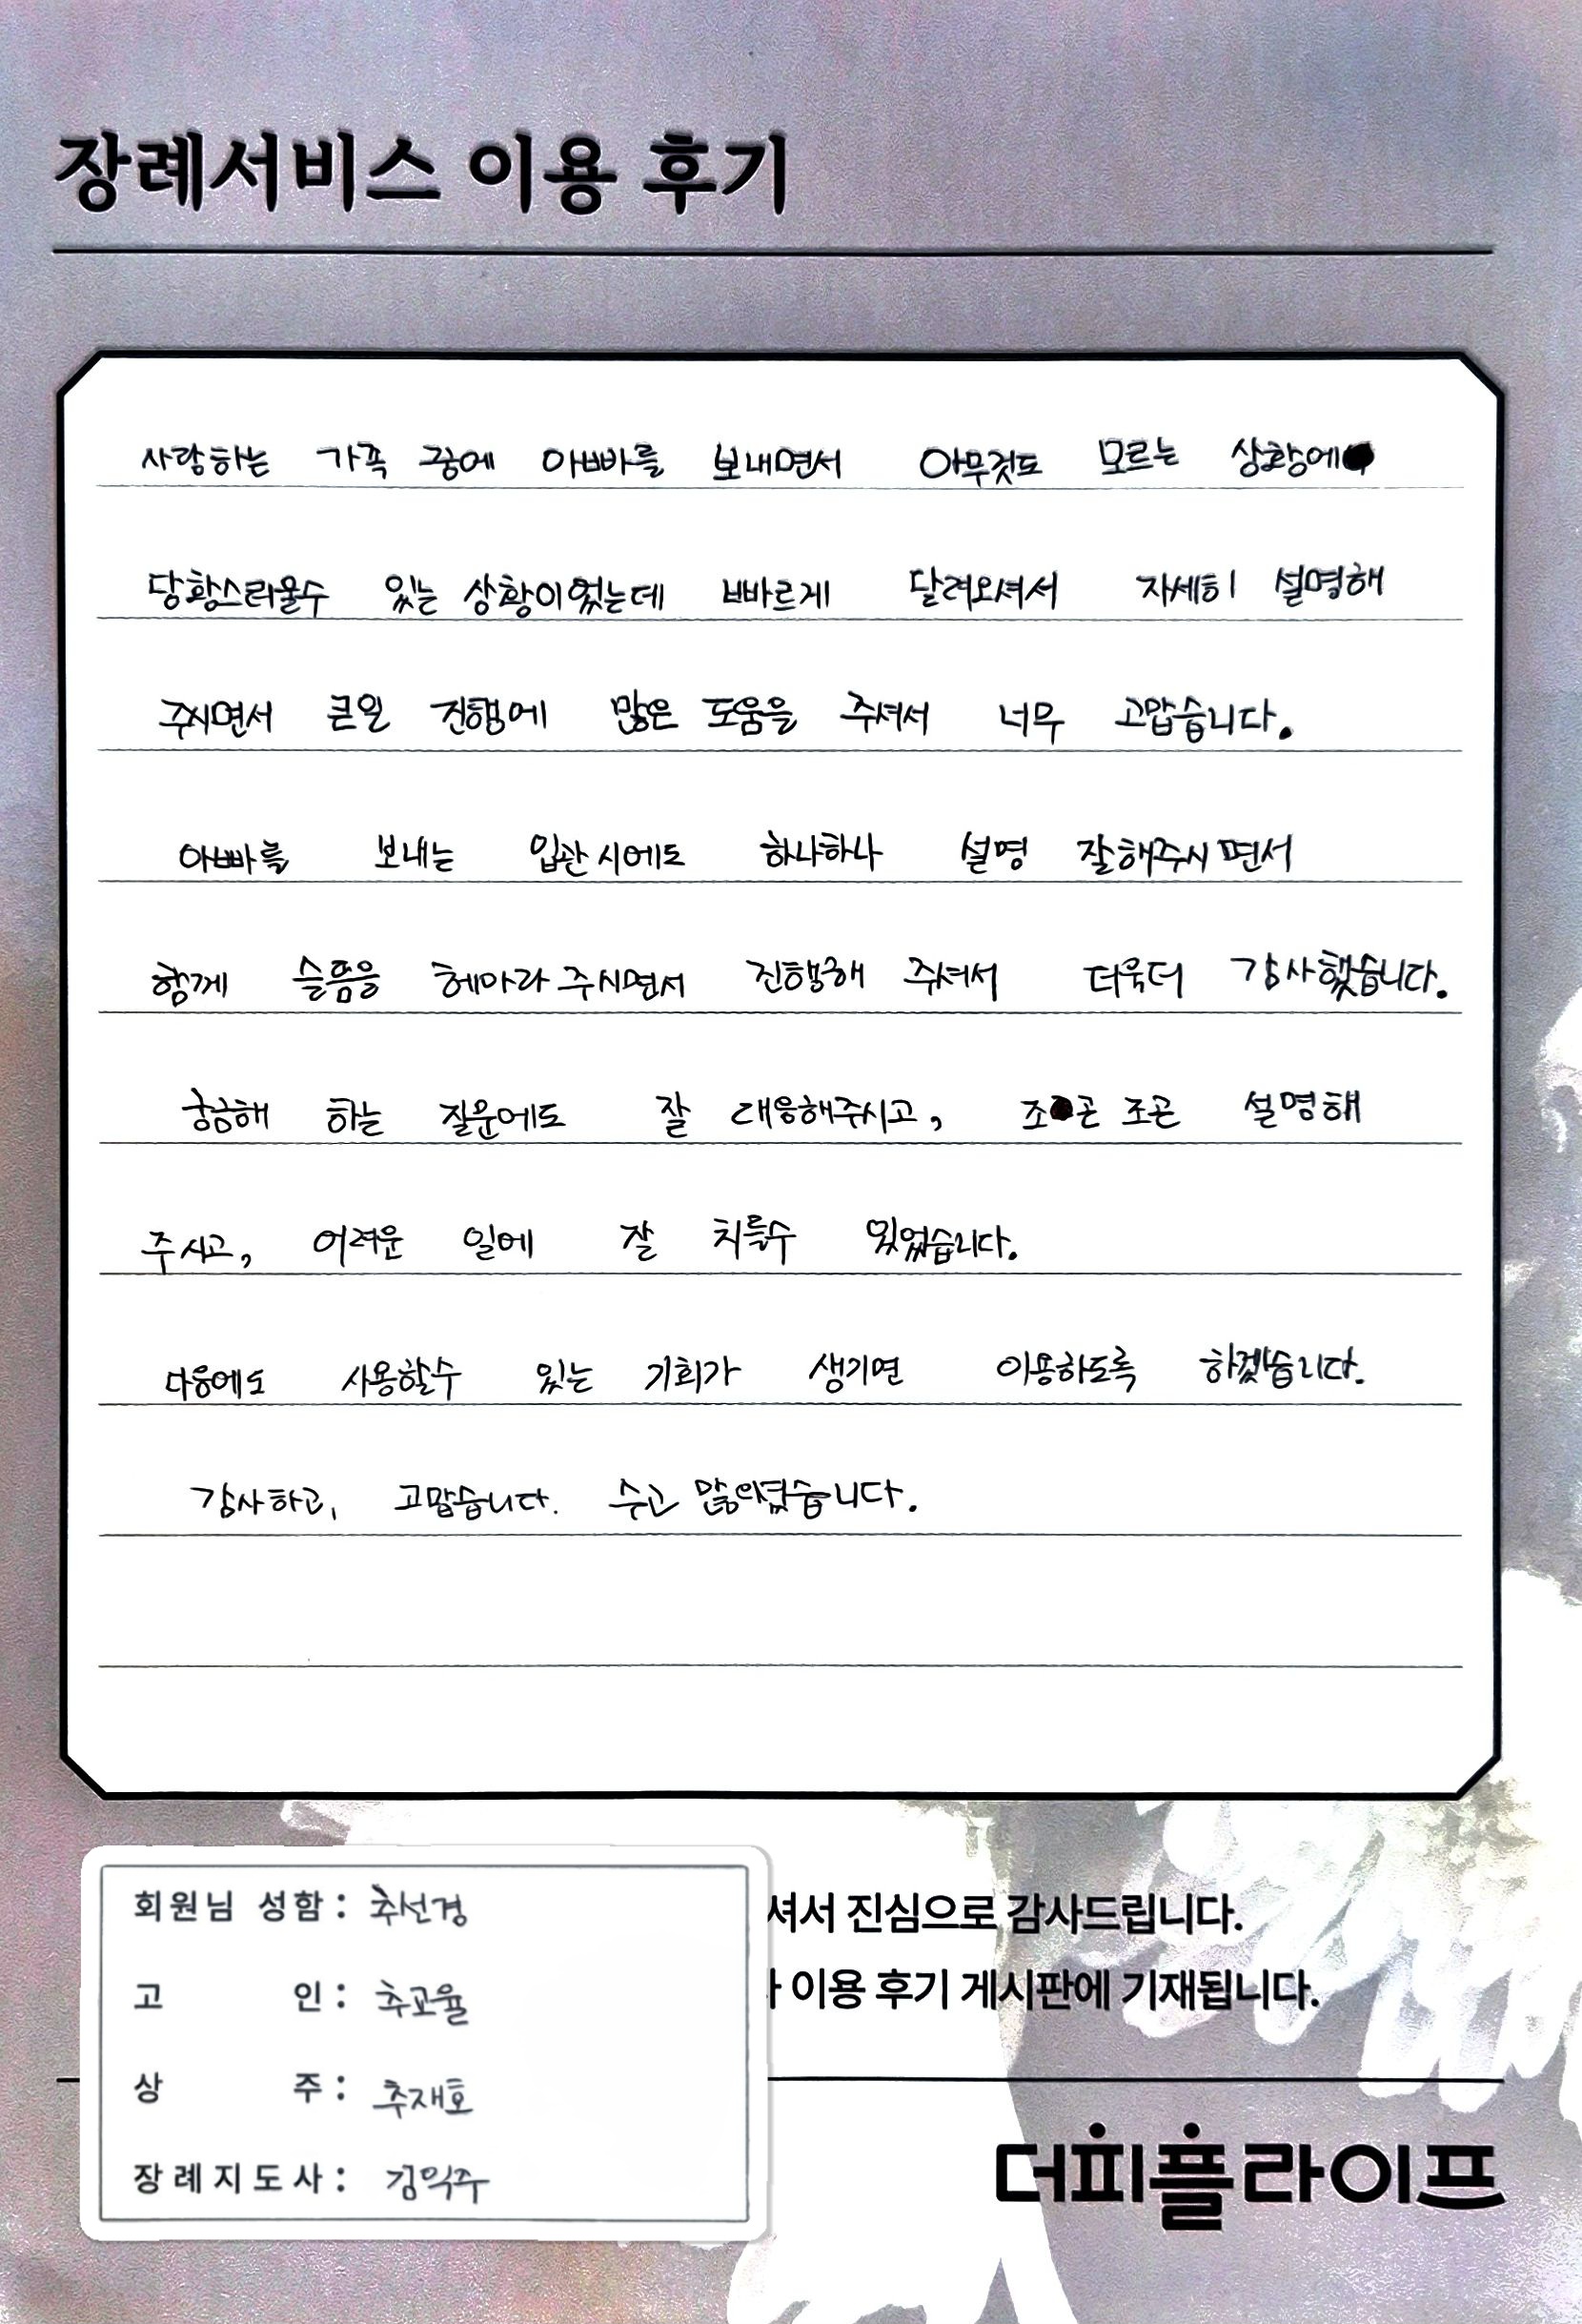 장례서비스 이용 후기
사랑하는 가족 중에 아빠를 보내면서 아무것도 모르는 상황에
당황스러울수 있는 상황이었는데 빠르게 달려오셔서 자세히 설명해
주시면서 큰일 진행에 많은 도움을 주셔서 너무 고맙습니다.
아빠를 보내는 입관시에도 하나하나 설명 잘해주시면서
함께 슬픔을 헤아려주시면서 진행해 주셔서 더욱더 감사했습니다.
궁금해 하는 질문에도 잘 대응해주시고, 조곤 조곤 설명해
주시고, 어려운 일에 잘 치를수 있었습니다.
다음에도 사용할수 있는 기회가 생기면 이용하도록 하겠습니다.
감사하고, 고맙습니다. 수고 많으셨습니다.
회원님 성함 : 추선경
고 인 : 추교율
상 주 : 추재호
장례지도사 : 김익주
셔서 진심으로 감사드립니다.
이용 후기 게시판에 기재됩니다.
더피플라이프